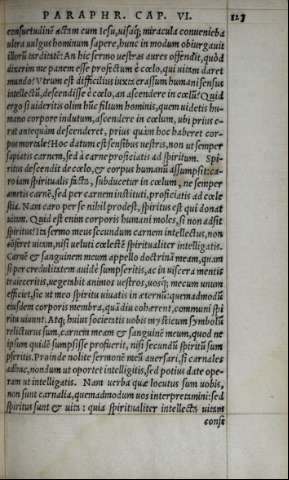 PARAPHR. CAP. VI. 123
consuetudinē actam cum Iesu, uisaq́; miracula conuenieba
ultra uulgus hominum sapere, hunc in modum obiurgauit
illorū tarditatē: An hic sermo uestras aures offendit, quòd
dixerim me panem esse profectum è cœlo, qui uitam daret
mundo? Vtrum est difficilius iuxta crassum humani sensus
intellectū, descendisse è cœlo, an ascendere in cœlū? Quid
ergo si uideritis olim hūc filium hominis, quem uidetis hu-
mano corpore indutum, ascendere in cœlum, ubi prius e-
rat antequàm descenderet, prius quàm hoc haberet cor-
pus mortale? Hoc datum est sensibus uestris, non ut semper
sapiatis carnem, sed à carne proficiatis ad spiritum. Spi-
ritus descendit de cœlo, & corpus humanū assumpsit: ca-
ro iam spiritualis facta, subducetur in cœlum, ne semper
ametis carnē, sed per carnem instituti, proficiatis ad cœle
stia. Nam caro per se nihil prodest, spiritus est qui donat
uitam. Quid est enim corporis humani moles, si non adsit
spiritus? Ita sermo meus secundum carnem intellectus, non
cōferet uitam, nisi ueluti cœlestē spiritualiter intelligatis.
Carnē & sanguinem meum appello doctrinā meam, quam
si per credulitatem auidè sumpseritis, ac in uiscera mentis
traieceritis, uegetabit animos uestros, uosq́; mecum unum
efficiet, sic ut meo spiritu uiuatis in æternū: quemadmodū
eiusdem corporis membra, quādiu cohærent, communi spi
ritu uiuunt. Atq́; huius societatis uobis mysticum symbolū
relicturus sum, carnem meam & sanguinē meum, quod ne
ipsum quidē sumpsisse profuerit, nisi secundū spiritū sum
pseritis. Proinde nolite sermonē meū auersari, si carnales
adhuc, nondum ut oportet intelligitis, sed potius date ope-
ram ut intelligatis. Nam uerba quæ locutus sum uobis,
non sunt carnalia, quemadmodum uos interpretamini: sed
spiritus sunt & uita: quia spiritualiter intellecta uitam
confe